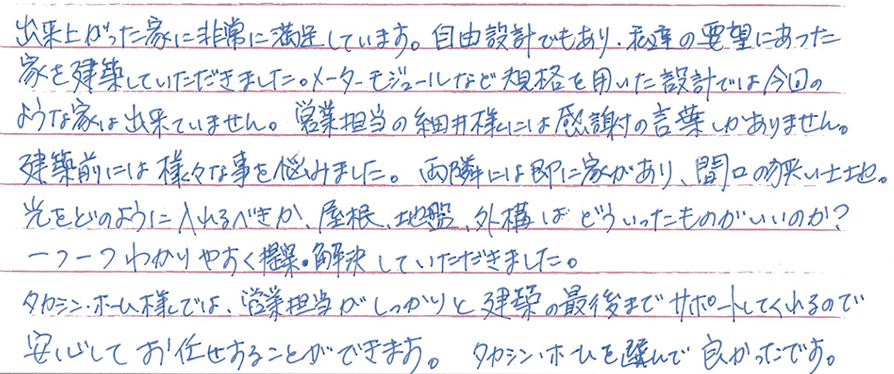 出来上がった家に非常に満足しています。自由設計でもあり、私達の要望にあった
家を建築していただきました。メーターモジュールなど規格を用いた設計では今回の
ような家は出来ていません。営業担当の細井様には感謝の言葉しかありません。
建築前には様々な事を悩みました。両隣には即に家があり、間口の狭い土地。
光をどのように入れるべきか、屋根、地盤、外構はどういったものがいいのか?
一つ一つわかりやすく提案・解決していただきました。
タカシン・ホーム様では、営業担当がしっかりと建築の最後までサポートしてくれるので
安心してお任せすることができます。 タカシン・ホームを選んで良かったです。